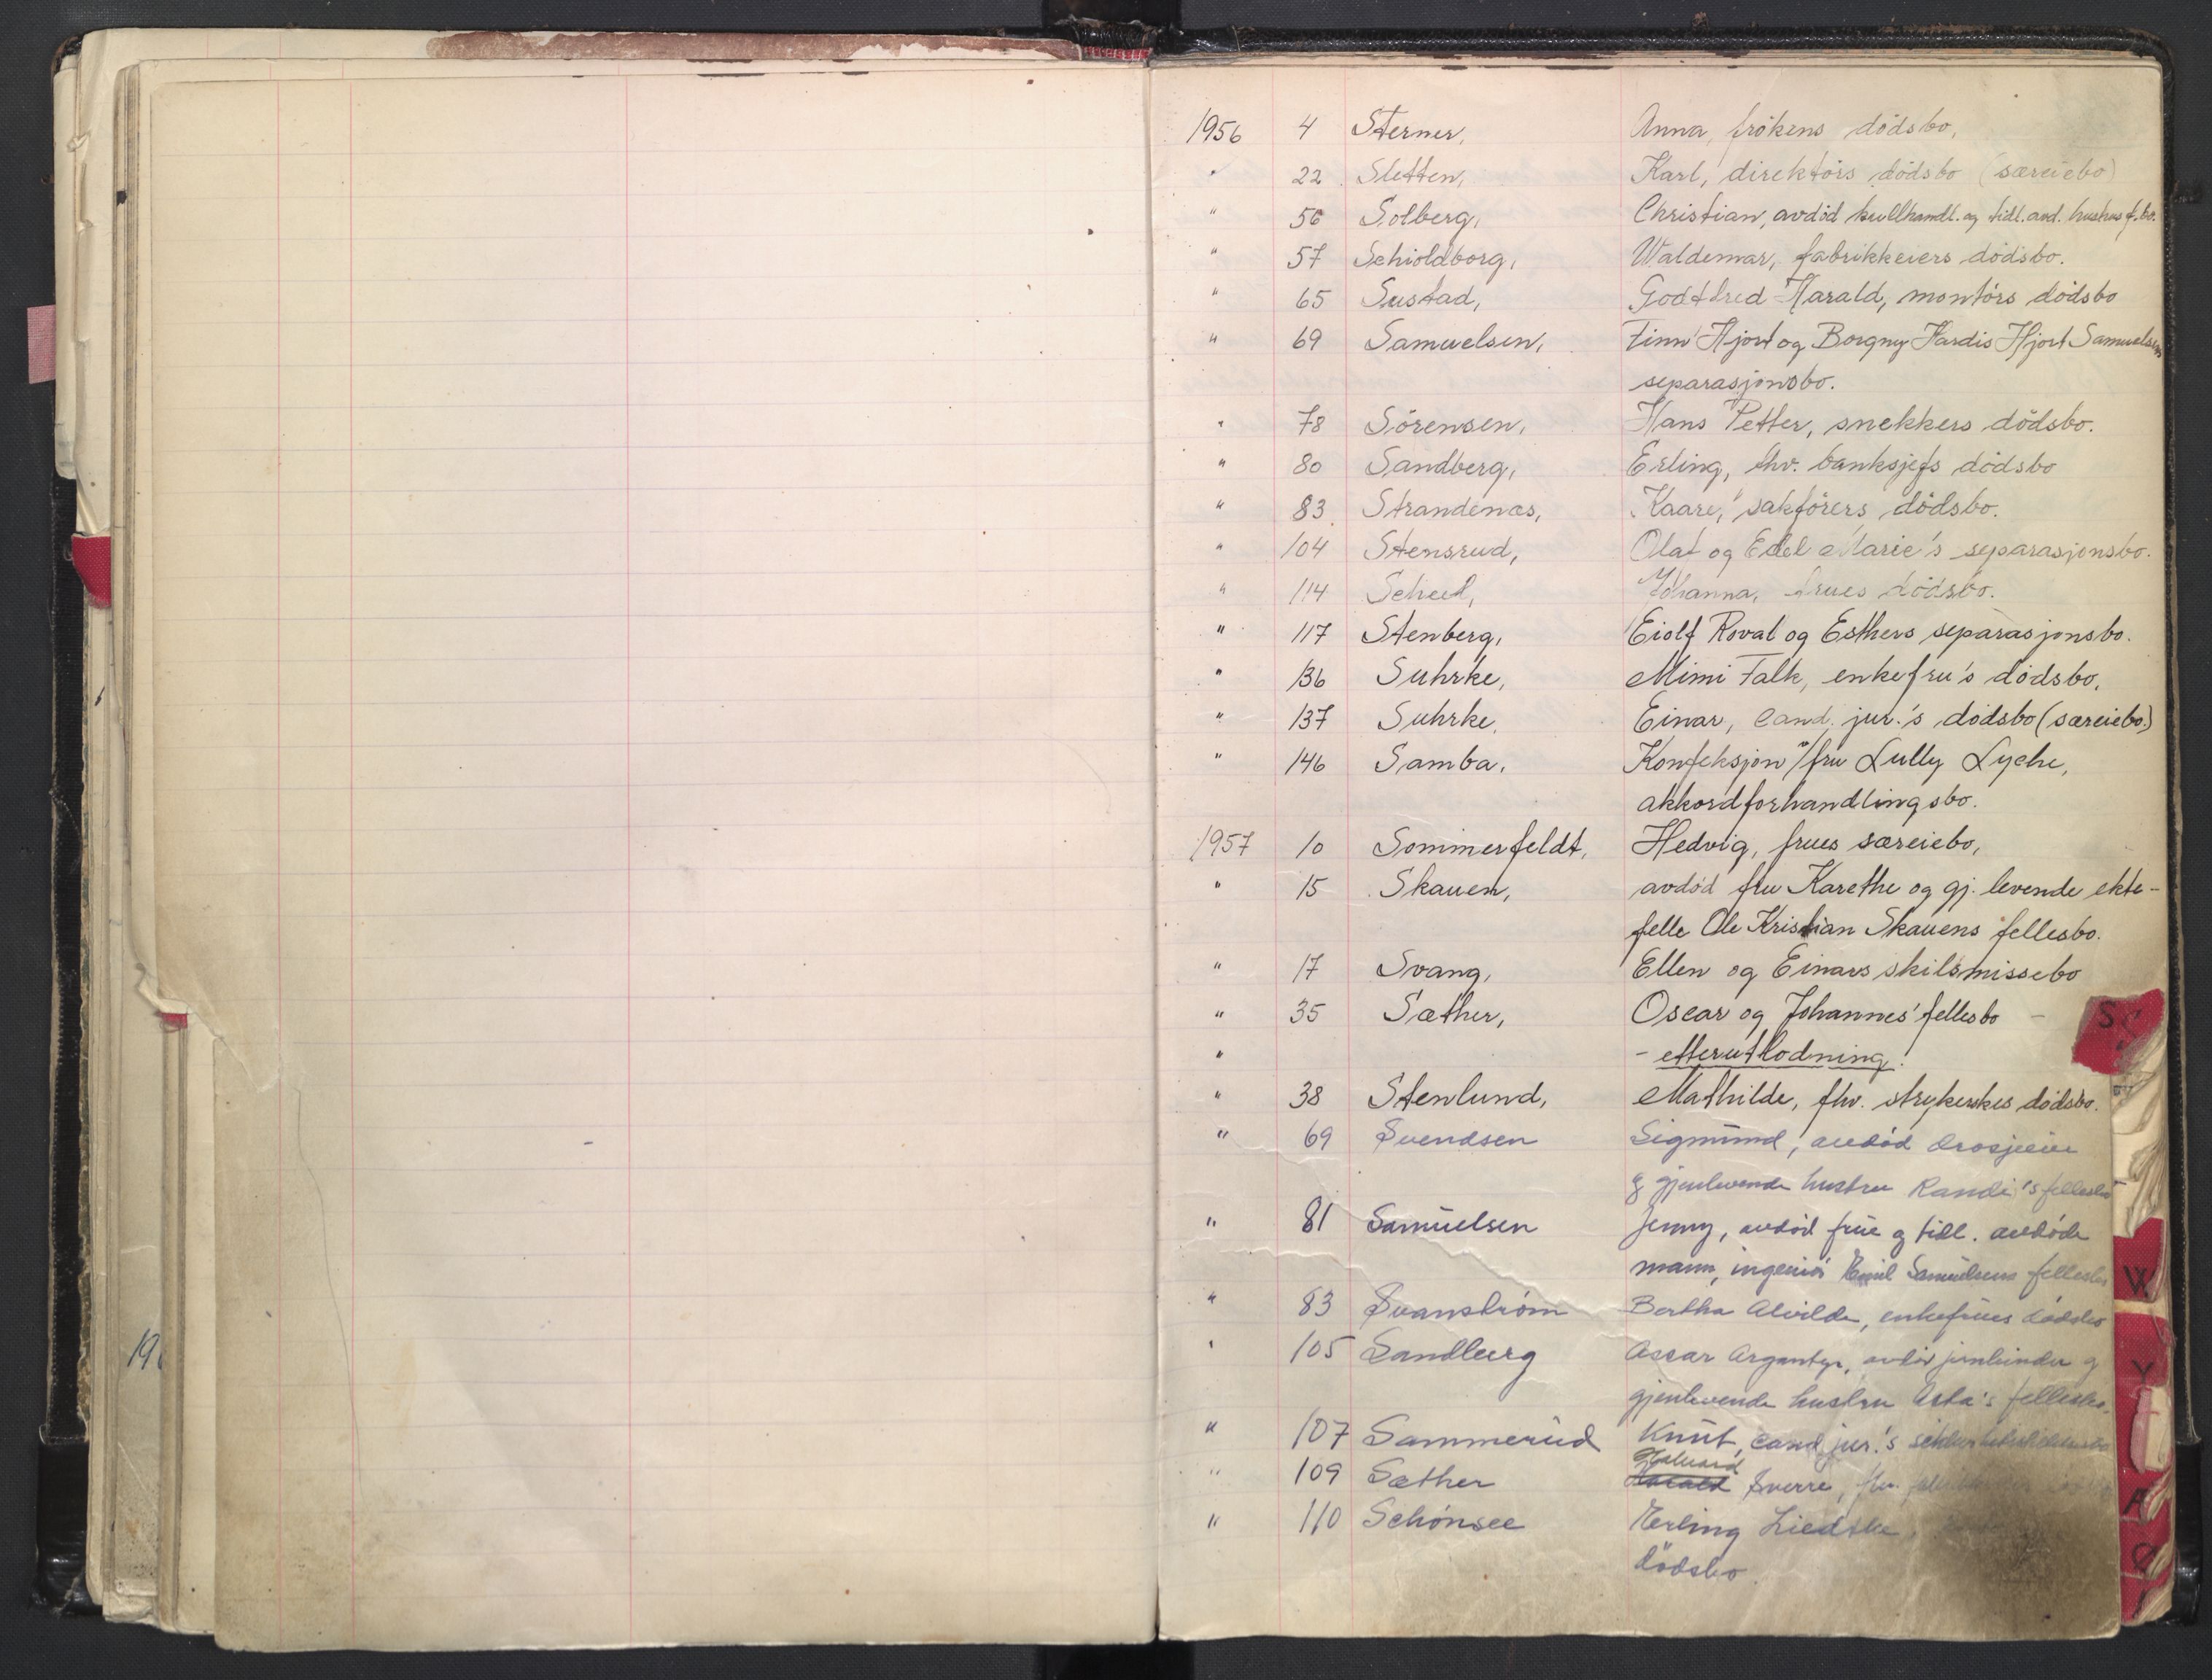 1956 4 Sterner, Anna, frökens dödsbo,
" 22 Sletten, Karl, direktörs dödsbo (særeiebo)
" 56 Solberg, Christian, avdöd kullhandl. og tidl. avd. hustrus f.bo.
" 57 Schioldborg, Waldemar, fabrikkeiers dödsbo.
" 65 Sustad, Godtfred Harald, montörs dödsbo
" 69 Samuelsen, Finn Hjort og Borgny Hardis Hjort Samuelsens
separasjonsbo.
" 78 Sörensen, Hans Petter, snekkers dödsbo.
" 80 Sandberg, Erling, fhv. banksjefs dödsbo
" 83 Strandenæs, Kaare, sakförers dödsbo.
" 104 Stensrud, Olaf og Edel Marie's separasjonsbo.
" 114 Scheel, Johanna, frues dödsbo.
" 117 Stenberg, Eiolf Roval og Esthers separasjonsbo.
" 136 Suhrke, Mimi Falk, enkefru's dödsbo.
" 137 Suhrke, Einar, cand. jur.'s dödsbo (særeiebo)
" 146 Samba, Konfeksjon v/fru Lully Lyche,
akkordforhandlingsbo.
1957 10 Sommerfeldt, Hedvig, frues særeiebo,
" 15 Skauen, avdöd fru Karethe og gj. levende ekte-
felle Ole Kristian Skauens fellesbo.
" 17 Svang, Ellen og Einars skilsmissebo
" 35 Sæther, Oscar og Johannes' fellesbo -
" - etterutlodning.
" 38 Stenlund, Mathilde, fhv. strykerskes dödsbo.
" 69 Svendsen Sigmund, avdöd drosjeeier
og gjenlevende hustru Randi's fellesbo
" 81 Samuelsen Jenny, avdöd frue og tidl. avdöde
mann, ingeniör Emil Samuelsens fellesbo
" 83 Svanström Bertha Alvilde, enkefrues dödsbo
" 105 Sandberg Assar Argantyr, avdöd jernbinder og
gjenlevende hustru Asta's fellesbo.
" 107 Sammerud Knut, cand jur.'s
Halvard
" 109 Sæther Harald Sverre, fhv.
" 110 Schönsee Erling Liedtke,
dödsbo.
S
V
W
Y
Æ
Ø
19